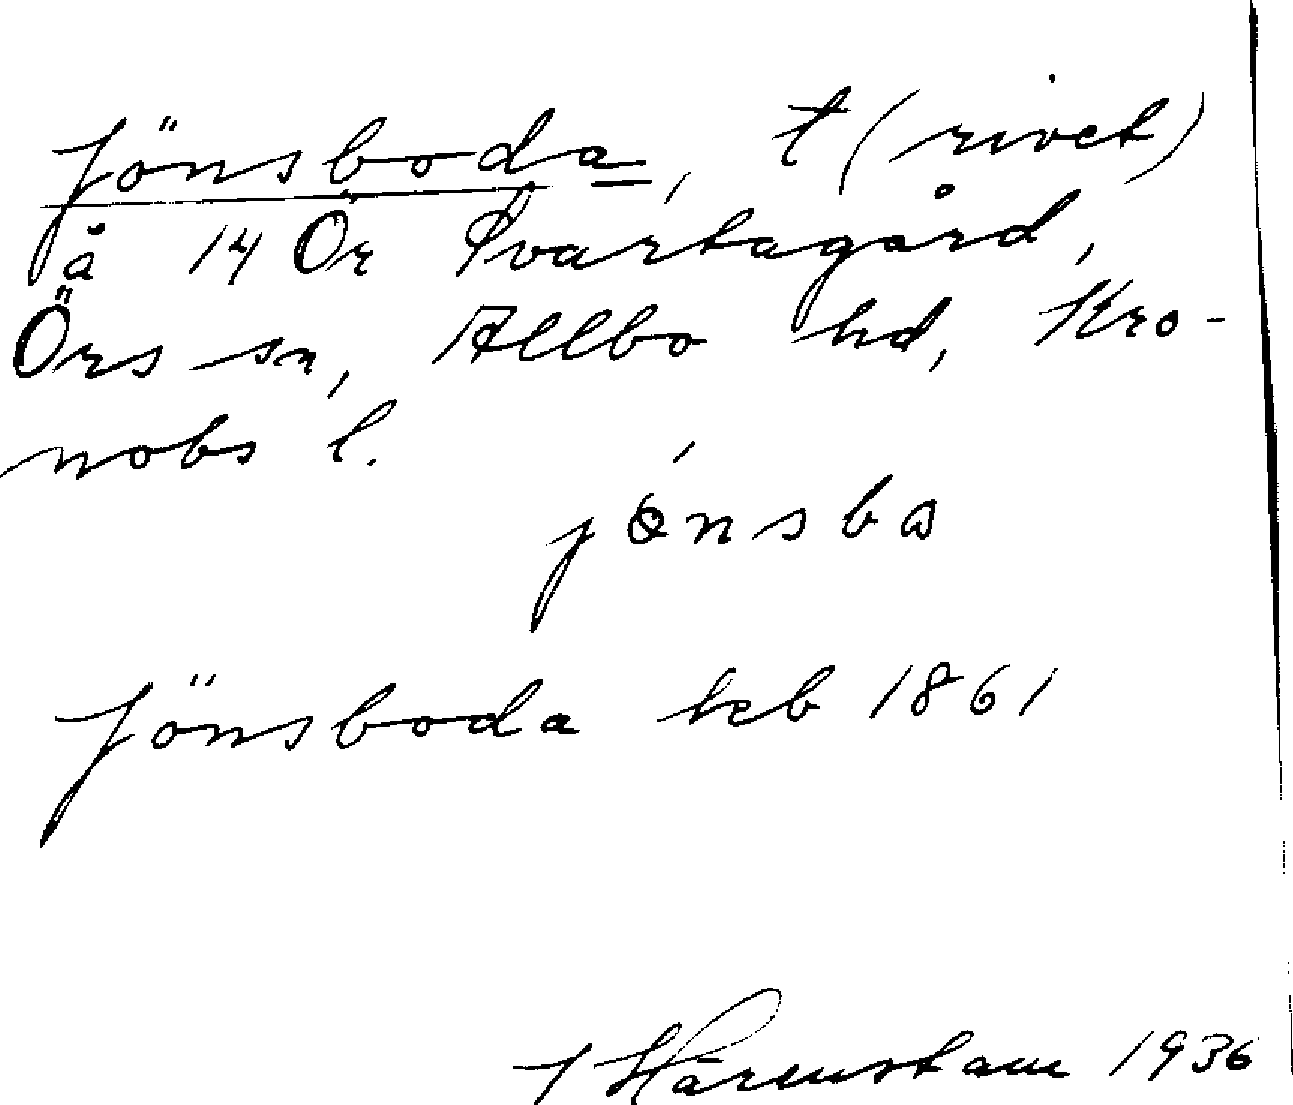 Jönsboda, t (rivet)
å 14 Ör Svartagård,
Örs sn, Allbo hd, Kro-
nobs l.
jönsba
Jönsboda heb 1861
1936